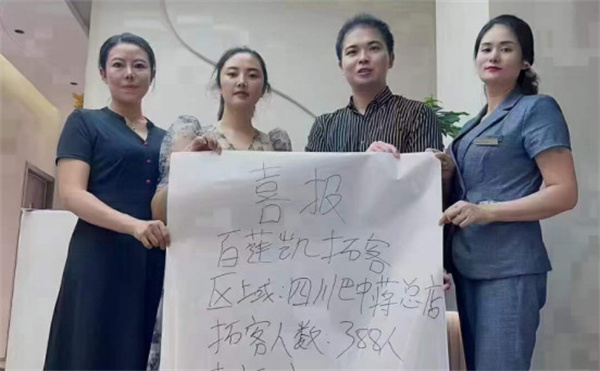 喜报
百莲凯拓客
区域:四川巴中蒋总店
拓客人数:388人